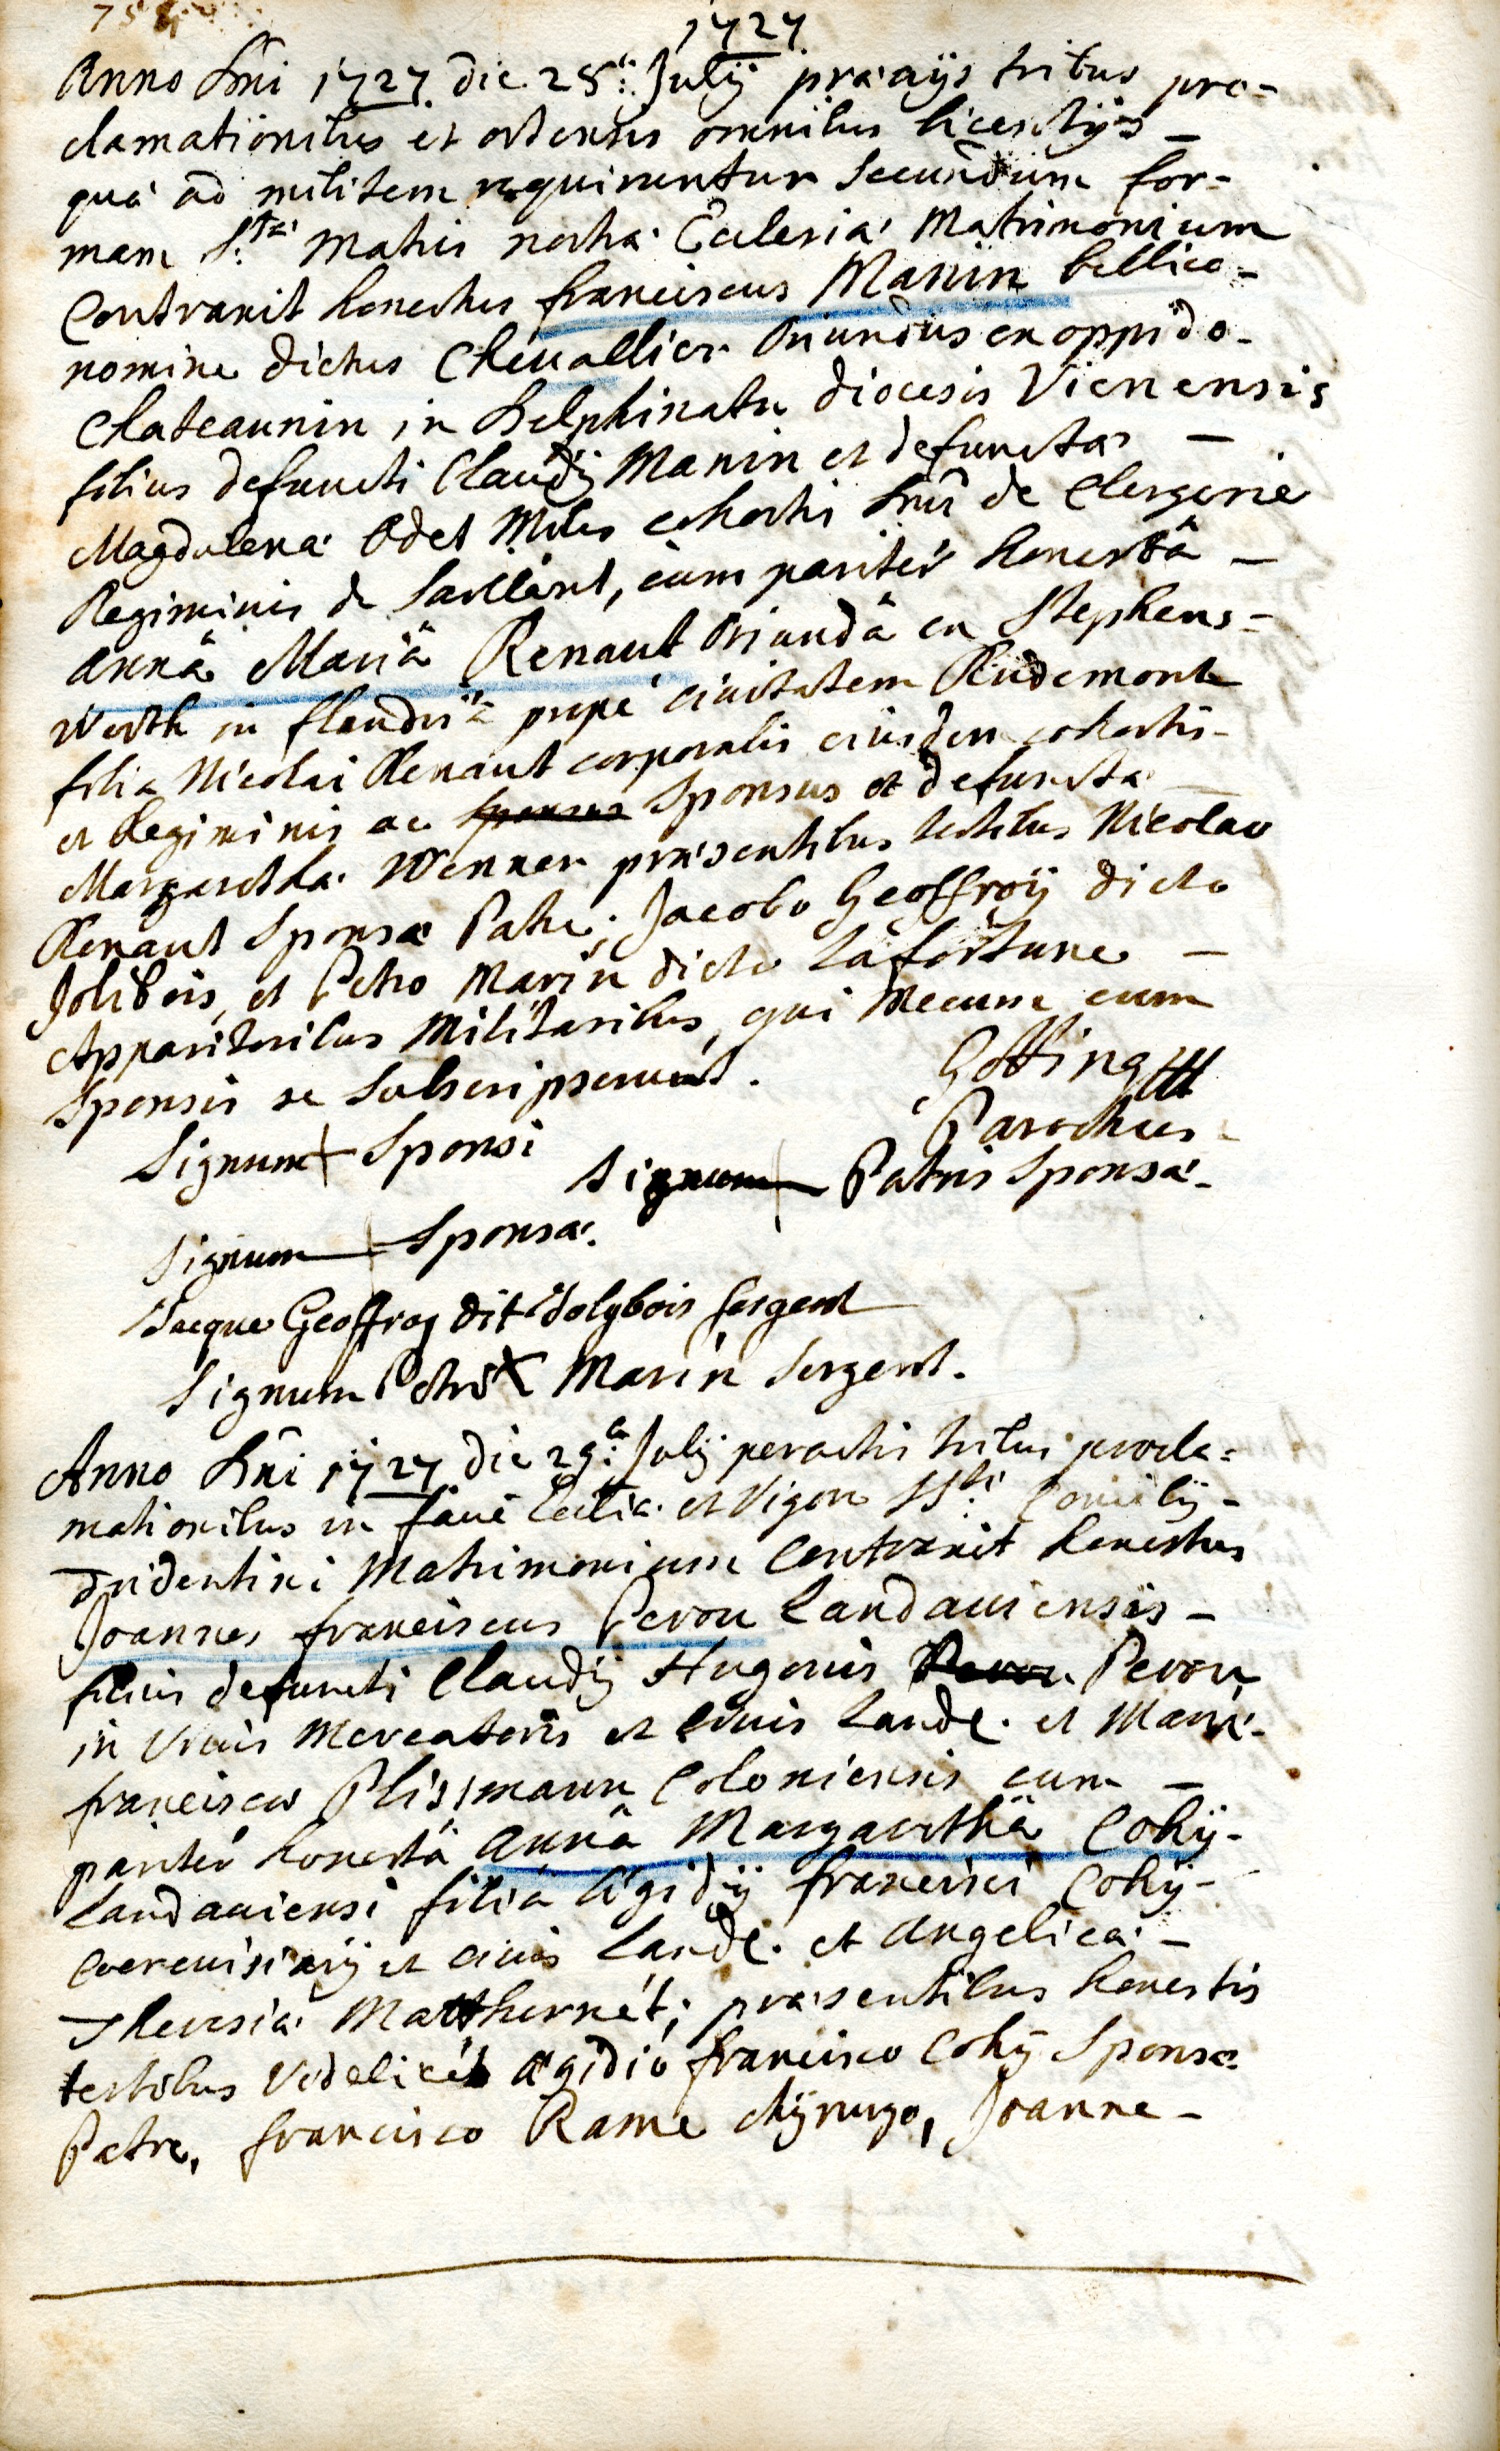 1727
Anno Dni 1727 die 28a: Julij praevijs tribus pro-
clamationibus et ostensis omnibus licentijs
quae ad militem requiruntur secundum for-
mam S:tae Matris nostrae Ecclesiae Matrimonium
Contraxit honestus franciscus Manin bellico-
nomine dictus Chevallier oriundus ex oppido
Chateaunin in Delphinatu dioecesis Vienensis
filius defuncti Claudij Manin et defunctae
Magdalenae Odet Miles cohortis Dni de Clergerie
Regiminis de Saillant, cum pariter honestâ
annâ Mariâ Renaut Oriundâ ex Stephens-
werth in flandriâ prope civitatem Rudemonte
filia Nicolai Renaut corporalis eiusdem cohortis
et Regiminis ac sponsus Sponsus et defunctae
Margarethae Wenner praesentibus testibus Nicolao
Renaut Sponsae Patre; Jacobo Geoffroÿ dicto
Jolibois, et Petro Marin dicto Lafortune
Apparitoribus Militaribus, qui Mecum cum
Sponsis se subscripserunt.
Gotting
Parochus
Signum Sponsi
Signum Patris Sponsae
Signum Sponsae.
Jacque Geoffroy dit Jolybois sergent
Signum Petri X Marin sergent.
Anno Dni 1727 die 29a: Julij peractis tribus procla-
mationibus in facie Eccliae et Vigore SSti Concilij
Tridentini Matrimonium Contraxit honestus
Joannes franciscus Perou Landaviensis
filius defuncti Claudij Hugonis Perou Perou
in vivis Mercatoris et civis Landa. et Mariae
franciscae Plissmann Coloniensis cum
pariter honestâ annâ Margarethâ Cohÿ
Landaviensi filiâ AEgidij francisci Cohÿ
Cerevisiarij et civis Landa. et Angelicae
Theresiae Matthernet; praesentibus honestis
testibus Videlicet AEgidio francisco Cohÿ Sponsae
Patre, francisco Rame chÿrurgo, Joanne